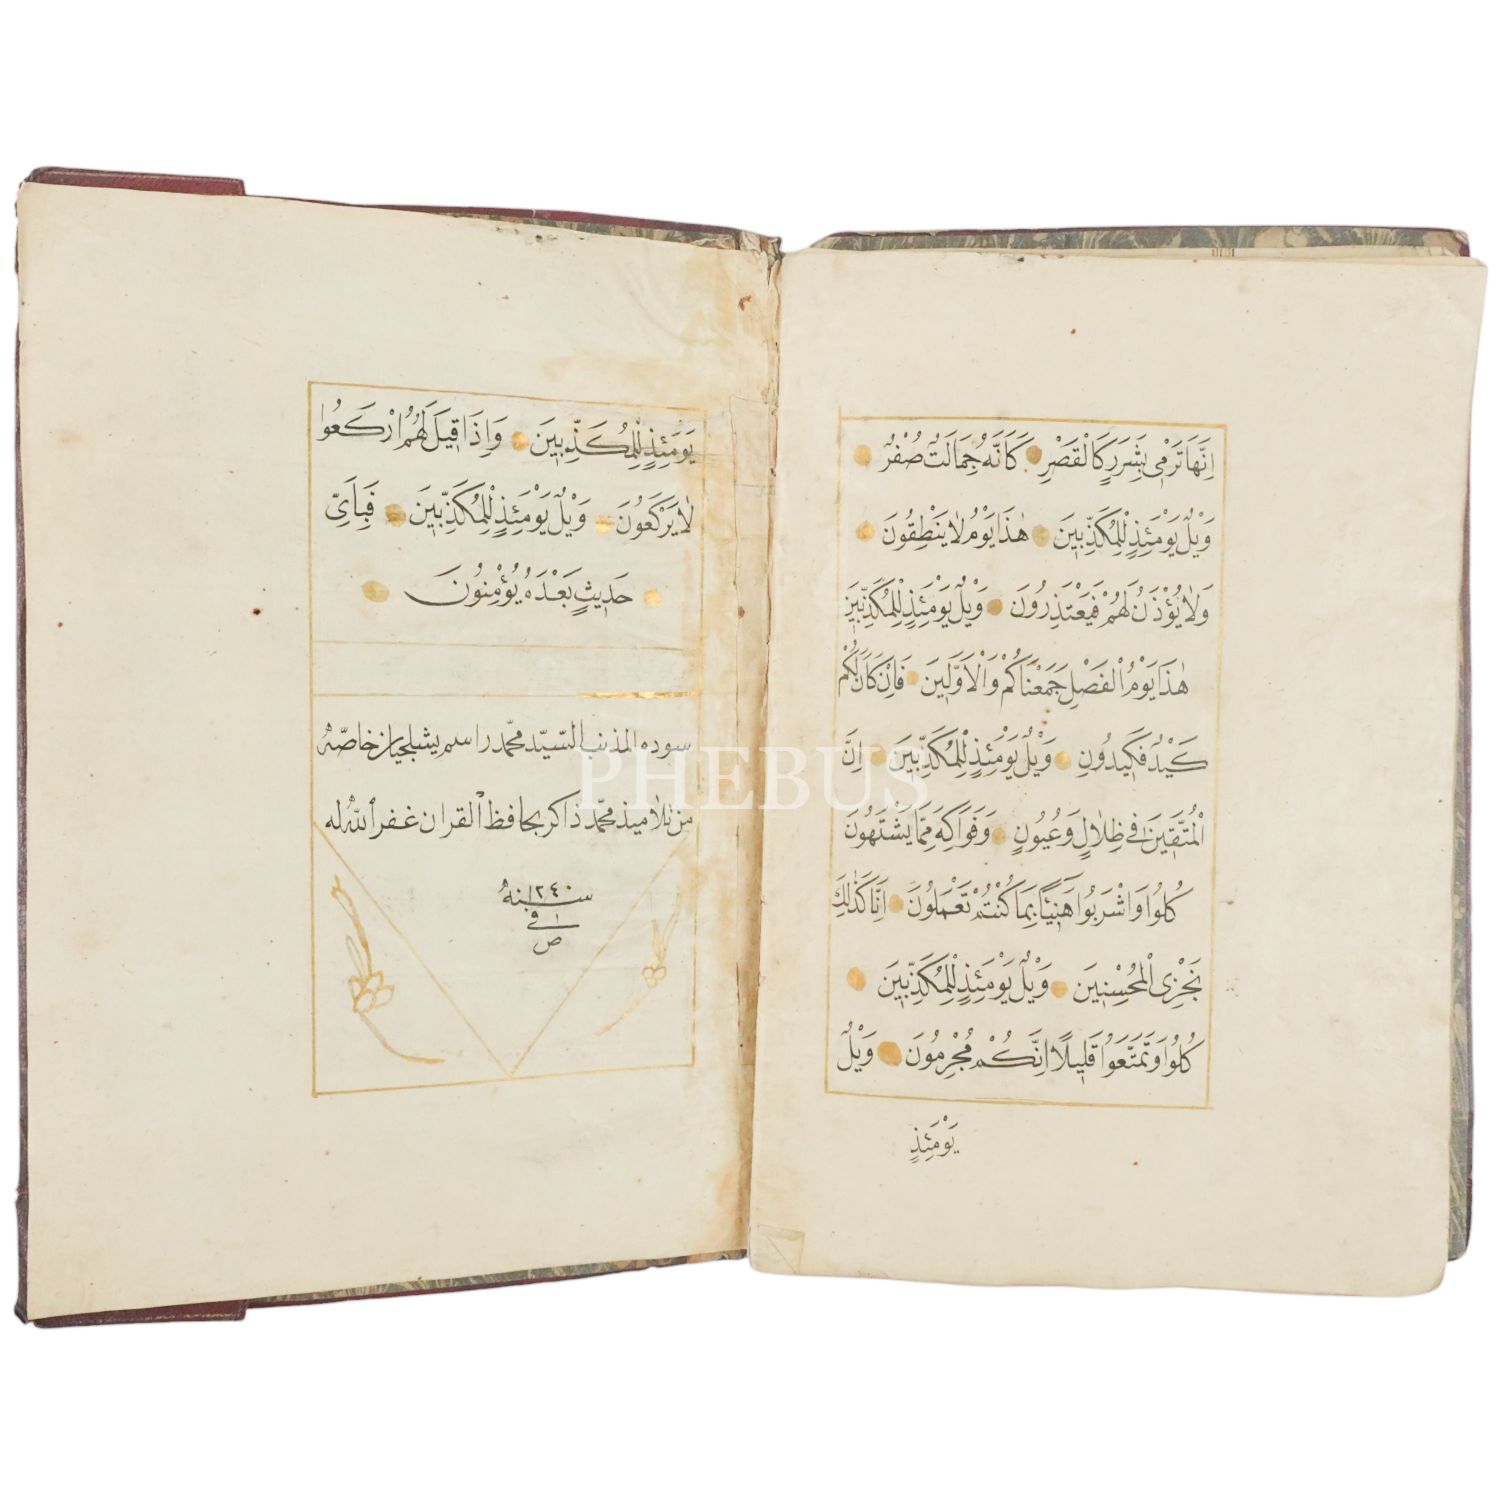 اِنَّهَا تَرْمٖى بِشَرَرٍ كَالْقَصْرِ كَاَنَّهُ جِمَالَتٌ صُفْرٌ
وَيْلٌ يَوْمَئِذٍ لِلْمُكَذِّبٖينَ هٰذَا يَوْمُ لَا يَنْطِقُونَ
وَلَا يُؤْذَنُ لَهُمْ فَيَعْتَذِرُونَ وَيْلٌ يَوْمَئِذٍ لِلْمُكَذِّبٖينَ
هٰذَا يَوْمُ الْفَصْلِ جَمَعْنَاكُمْ وَالْاَوَّلٖينَ فَاِنْ كَانَ لَكُمْ
كَيْدٌ فَكٖيدُونِ وَيْلٌ يَوْمَئِذٍ لِلْمُكَذِّبٖينَ اِنَّ
الْمُتَّقٖينَ فٖى ظِلَالٍ وَعُيُونٍ وَفَوَاكِهَ مِمَّا يَشْتَهُونَ
كُلُوا وَاشْرَبُوا هَنٖيـًٔا بِمَا كُنْتُمْ تَعْمَلُونَ اِنَّا كَذٰلِكَ
نَجْزِى الْمُحْسِنٖينَ وَيْلٌ يَوْمَئِذٍ لِلْمُكَذِّبٖينَ
كُلُوا وَتَمَتَّعُوا قَلٖيلًا اِنَّكُمْ مُجْرِمُونَ وَيْلٌ
يَوْمَئِذٍ
يَوْمَئِذٍ لِلْمُكَذِّبٖينَ وَاِذَا قٖيلَ لَهُمُ ارْكَعُوا
لَا يَرْكَعُونَ وَيْلٌ يَوْمَئِذٍ لِلْمُكَذِّبٖينَ فَبِاَىِّ
حَدٖيثٍ بَعْدَهُ يُؤْمِنُونَ
سوده المذنب السّيّد محمّد راسم يشبلجيان خاصّه
من تلاميذ محمّد ذاكر بحافظ القران غفر الله له
سنه ١٢٤٠
فى ١
ص
PHEBUS